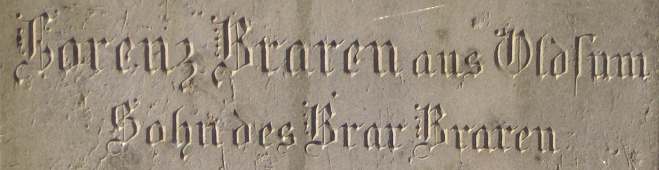 Lorenz Braren aus Oldſum
Sohn des Brar Braren